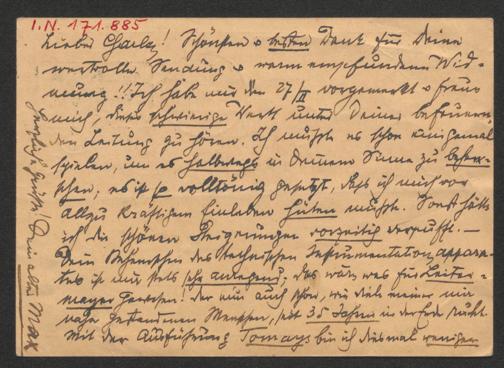 I.N. 171.885
Lieber Charley! Schönsten & besten Dank für Deine
wertvolle Sendung & warm empfundene Wid-
mung!! Ich habe mir den 27/II vorgemerkt & freue
mich, dieses schwierige Werk unter Deiner
den Leitung zu hören. Ich müsste es schon einigemal
spielen, um es halbwegs in Deinem Sinne zu beherr-
schen, es ist so volltönig gesetzt, dass ich mich vor
allzu kräftigem hüten müsste. Sonst hätte
ich die schönen Steigerungen vorzeitig verpufft. –
Dein Beherrschen des technischen Instrumentationsappara-
tes ist mir stets sehr anregend; das wär was für Leiter-
mayer gewesen! Der nun auch schon, wie viele meiner mir
nahe gestandenen Menschen, seit 35 Jahren in der Erde ruht.
Mit der Ausführung bin ich diesmal weniger
herzliche Grüsse! Dein alter Max